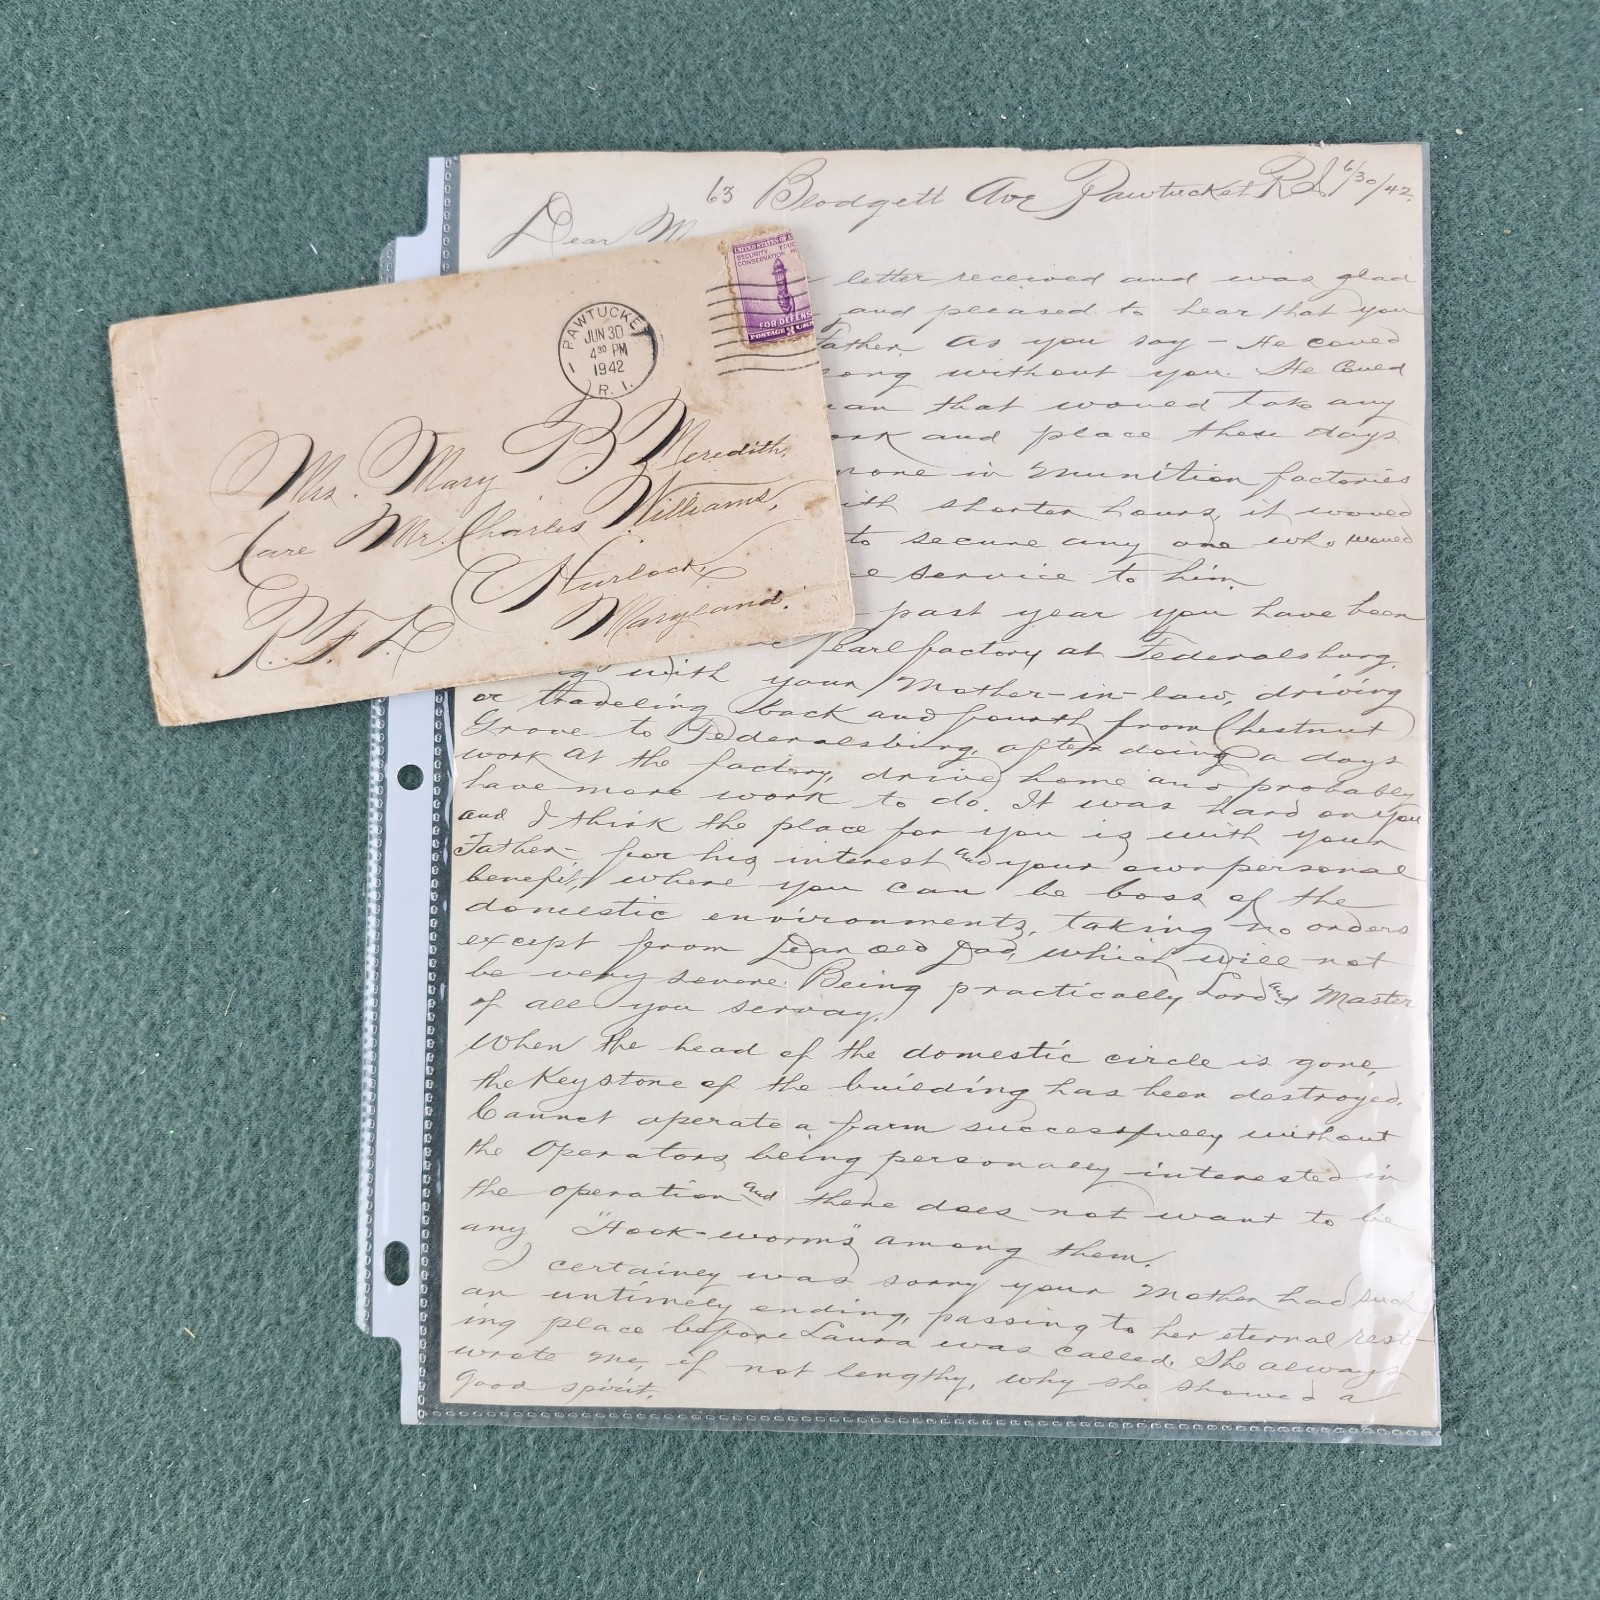 63 Blodgett Ave Pawtucket R I 6/30/42.
Dear M
letter received and was glad
and pleased to hear that you
Father. As you say - He could
ong without you. He Could
man that would take any
ork and place these days
more in Munition factories
ith shorter hours, it would
to secure any one who would
ce service to him.
past year you have been
e Pearl factory at Federalsburg.
g with your Mother-in-law, driving
or traveling back and fourth from Chestnut
Grove to Federalsburg, after doing a days
work at the factory, drive home and probably
have more work to do. It was hard on you
and I think the place for you is with your
Father - for his interest and your own personal
benefit, where you can be boss of the
domestic environments, taking no orders
except from Dear old Dad, which will not
be very severe. Being practically Lord and Master
of all you servay.
When the head of the domestic circle is gone,
the Keystone of the building has been destroyed.
Cannot operate a farm successfully without
the Operators being personally interested in
the operation and there does not want to be
any "Hook-worms" among them.
I certainly was sorry your Mother had such
an untimely ending, passing to her eternal rest-
ing place before Laura was called. She always
wrote me, if not lengthy, why she showed a
good spirit.
PAWTUCKET
JUN 30
4 30 PM
1942
R. I.
1
UNITED STATES OF A
SECURITY EDUC
CONSERVATION H
FOR DEFENS
POSTAGE 3
Mrs. Mary B Meredith,
Care Mr. Charles Williams,
R. F. D Hurlock,
Maryland.